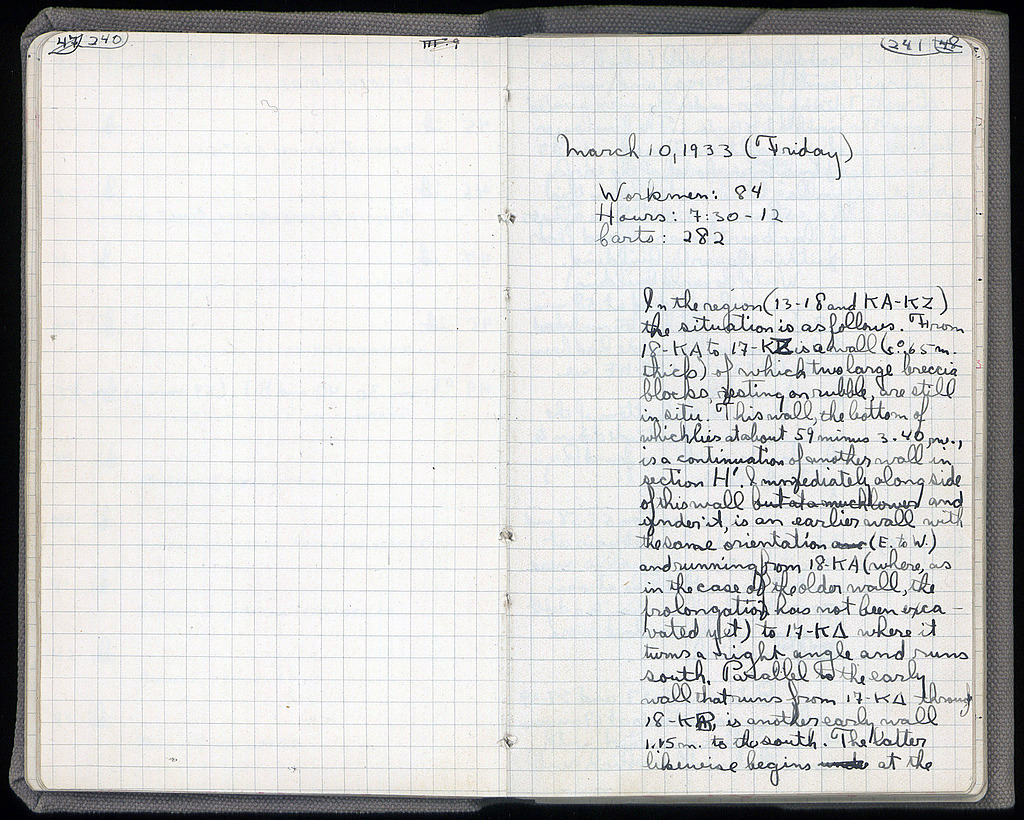 47 240
III.9
241 48
March 10, 1933 (Friday)
Workmen: 84
Hours: 7:30-12
Carts: 282
In the region (13-18 and KA-KZ)
the situation is as follows. From
18-KA to 17-K is a wall (c. 0.65 m.
thick) of which two large breccia
blocks, resting on rubble, are still
in situ. This wall, the bottom of
which lies at about 59 minus 3.40 m.,
is a continuation of another wall in
section H'. Immediately alongside
of this wall but at a much lower and
under it, is an earlier wall with
the same orientation (E. to W.)
and running from 18-KA (where, as
in the case of the older wall, the
prolongation has not been exca-
vated yet) to 17-KΔ where it
turns a right angle and runs
south. Parallel to the early
wall that runs from 17-KΔ through
18-K, is another early wall
1.15 m. to the south. The latter
likewise begins at the